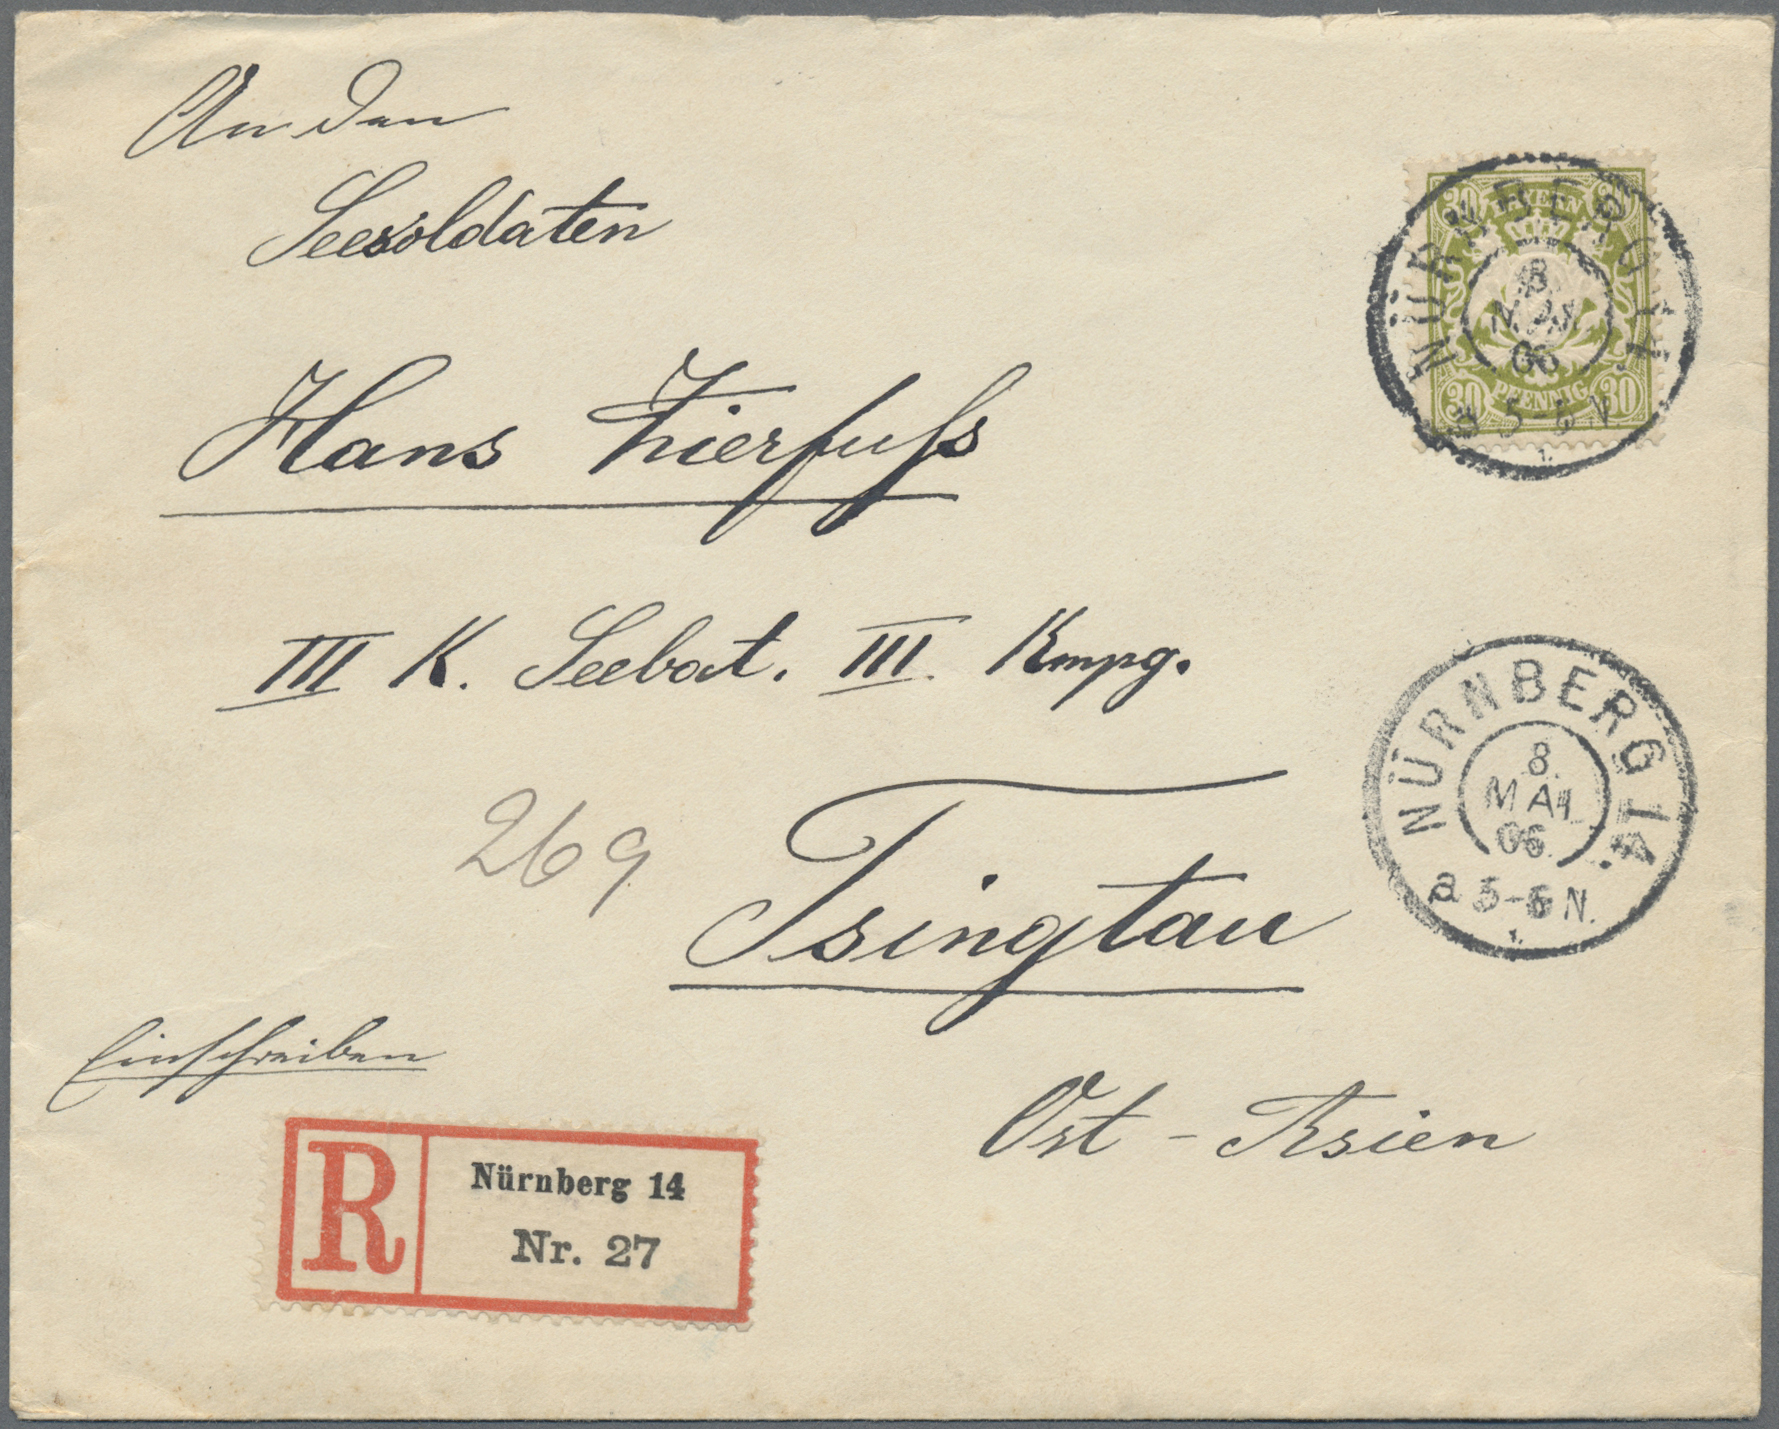 An den
Seesoldaten
Hans Zierfuss
III K. Seebat. III Kmpg.
269
Tsingtau
Einschreiben
Ost - Asien
R
Nürnberg 14
Nr. 27
30 BAYERN 30
30 PFENNIG 30
NÜRNBERG 14.
8.
MAI
06
a 5-6 N.
NÜRNBERG 14.
8.
MAI
06.
a 5-6 N.